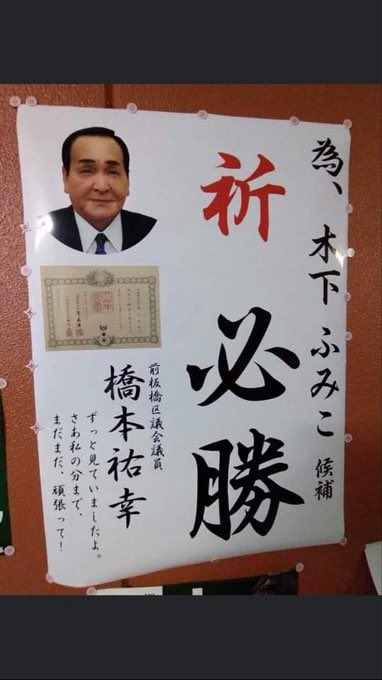 為、木下ふみこ 候補
祈
必勝
前板橋区議会議員
橋本祐幸
ずっと見ていましたよ。
さあ私の分まで、
まだまだ、頑張って！